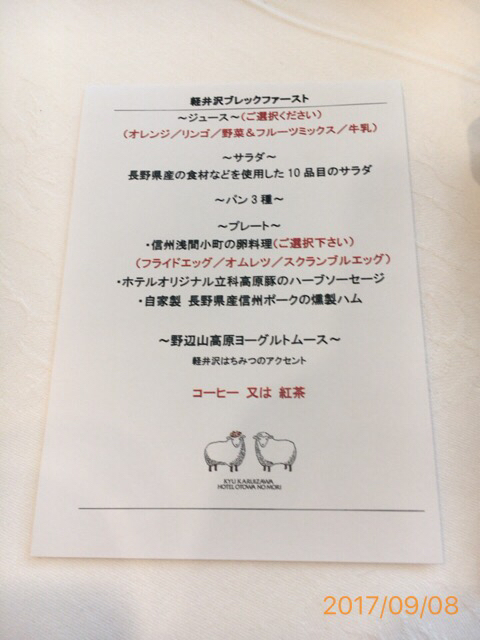 軽井沢ブレックファースト
～ジュース～(ご選択ください)
(オレンジ／リンゴ／野菜＆フルーツミックス／牛乳)
～サラダ～
長野県産の食材などを使用した10品目のサラダ
～パン3種～
～プレート～
・信州浅間小町の卵料理(ご選択下さい)
(フライドエッグ／オムレツ／スクランブルエッグ)
・ホテルオリジナル立科高原豚のハーブソーセージ
・自家製 長野県産信州ポークの燻製ハム
～野辺山高原ヨーグルトムース～
軽井沢はちみつのアクセント
コーヒー 又は 紅茶
KYU KARUIZAWA
HOTEL OTOWA NO MORI
2017/09/08